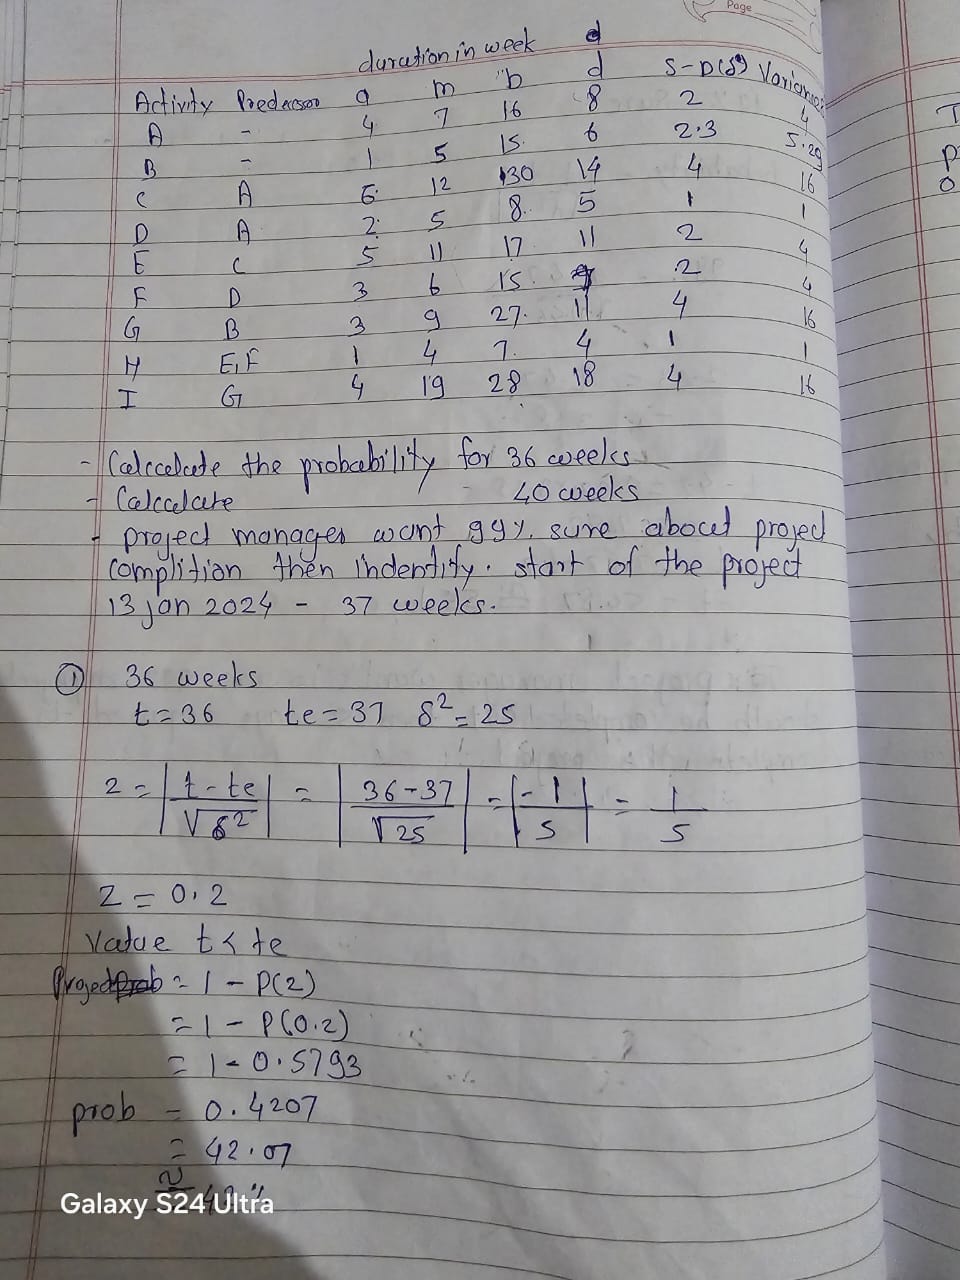 Page
duration in week
Activity Predecssor a m b d S-D(δ) Variance
A - 4 7 16 8 2 4
B - 1 5 15 6 2.3 5.29
C A 6 12 30 14 4 16
D A 2 5 8 5 1 1
E C 5 11 17 11 2 4
F D 3 6 15 2 4
G B 3 9 27 11 4 16
H E,F 1 4 7 4 1 1
I G 4 19 28 18 4 16
- Calcculcate the probability for 36 weeks
- Calcalate 40 weeks
- project manager want 99% sure about project
Complition then indentify. start of the project
13 jan 2024 - 37 weeks.
① 36 weeks
t = 36 te = 37 δ² = 25
z = |t - te / √δ²| = |36-37 / √25| = |-1 / 5| = 1 / 5
Z = 0.2
Value t < te
Project = 1 - P(z)
= 1 - P(0.2)
= 1 - 0.5793
prob = 0.4207
= 42.07
≈ 42%
Galaxy S24 Ultra
T
P
O